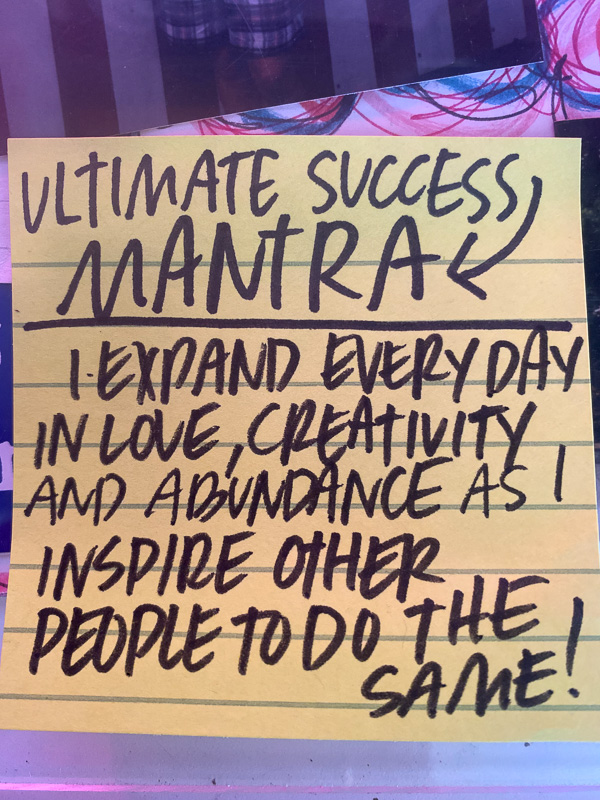 ULTIMATE SUCCESS
MANTRA
I EXPAND EVERY DAY
IN LOVE, CREATIVITY
AND ABUNDANCE AS I
INSPIRE OTHER
PEOPLE TO DO THE
SAME!